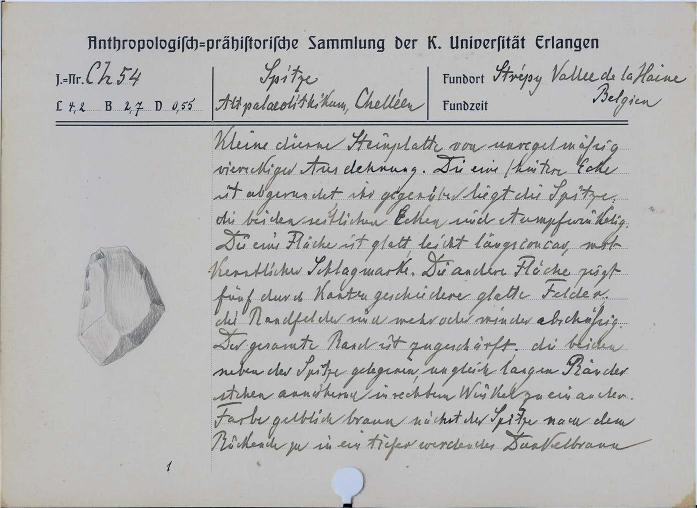 Anthropologisch=prähistorische Sammlung der K. Universität Erlangen
J.=Nr. Ch 54
L 4,2 B 2,7 D 0,55
Spitze
Altpalaeolithikum, Chelléen
Fundort Strépy Vallee de la Haine
Belgien
Fundzeit
Kleine dünne Steinplatte von unregelmäßig
viereckiger Ausdehnung. Die eine hintere Ecke
ist abgerundet ihr gegenüber liegt die Spitze.
die beiden seitlichen Ecken sind stumpfwinkelig.
Die eine Fläche ist glatt, leicht längsconcav, mit
kenntlicher Schlagmarke. Die andere Fläche zeigt
fünf durch Kanten geschiedene glatte Felder.
die Randfelder sind mehr oder minder abschüssig.
Der gesamte Rand ist zugeschärft. die beiden
neben der Spitze gelegenen, ungleich langen Ränder
stehen annähernd in rechtem Winkel zu einander.
Farbe gelblich braun nächst der Spitze nach dem
Rückende zu in ein tiefer werdendes Dunkelbraun
1